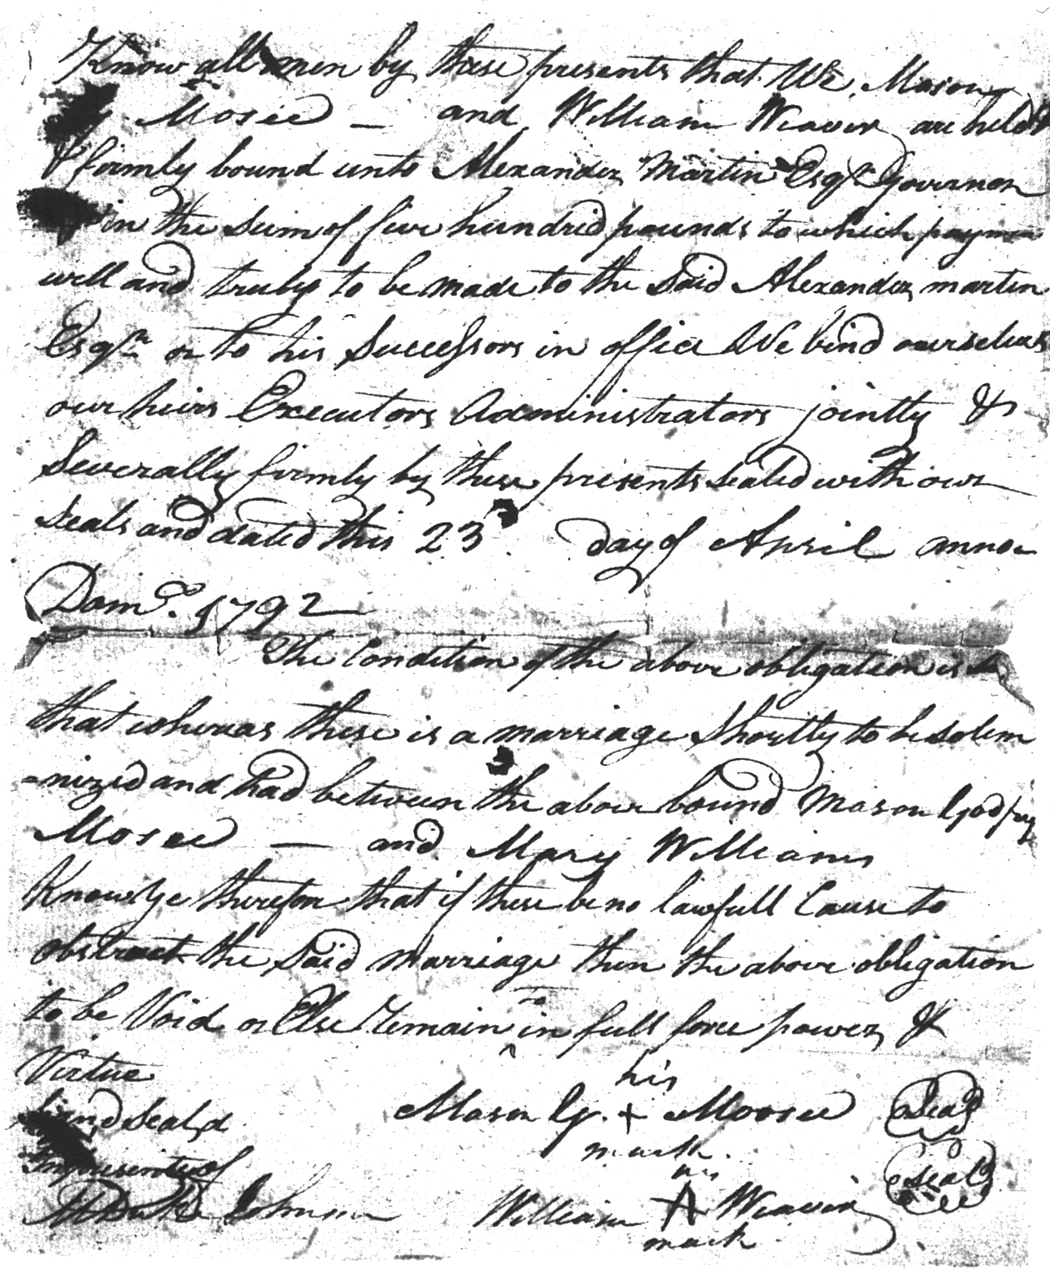 Know all men by these presents that We, Mason
Mosee — and William Weaver are held
& firmly bound unto Alexander Martin Esqr Governor
in the Sum of five hundred pounds to which paymen
well and truly to be made to the Said Alexander martin
Esqr or to his Successors in office We bind ourselves
our heirs Executors Administrators jointly &
Severally firmly by these presents sealed with our
Seals and dated this 23 day of April anno
Domo. 1792
The Condition of the above obligation is
that whereas there is a marriage Shortly to be solem
=nized and had between the above bound Mason
Mosee — and Mary Williams
Know Ye therefore that if there be no lawfull Cause to
obstruct the Said marriage then the above obligation
to be Void or Else Remain in full force power &
Virtue
his
Mason Gy. + Moosee Seal
mark
Seald
In presents of
his
Johnson William A Weaver Seal
mark